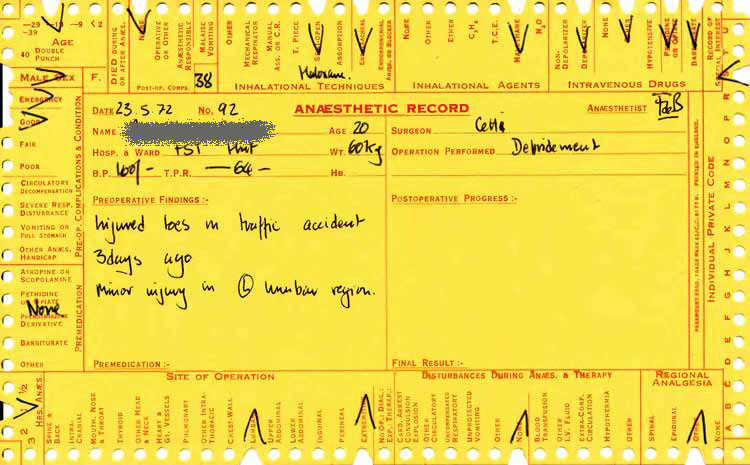 -29 -19 -9 <2
-39
40 AGE
DOUBLE
PUNCH
DIED DURING
OR AFTER ANÆS.
NONE
OPERATIVE
OR OTHER
ANÆSTHETIC
RESPONSIBLE
MALAISE
VOMITING
POST-OP. COMPS.
38
OTHER
MECHANICAL
RESPIRATOR
MANUAL
ASS. OR C.R.
T. PIECE
SEMI-OPEN
ABSORPTION
ENDOTRACHEAL
ENDOBRONCHIAL
AIRED. OR BLOCKER
INHALATIONAL TECHNIQUES
NONE
OTHER
ETHER
C₃H₆
T.C.E.
HALOTHANE
N₂O
INHALATIONAL AGENTS
NON-
DEPOLARIZER
DEPOLARIZER
NONE
OTHER
HYPOTENSIVE
PETHIDINE
OR OPIATE
BARBITURATE
INTRAVENOUS DRUGS
RECORD OF
SPECIAL INTEREST
MALE SEX F.
EMERGENCY
GOOD
FAIR
POOR
CIRCULATORY
DECOMPENSATION
SEVERE RESP.
DISTURBANCE
VOMITING OR
FULL STOMACH
OTHER ANÆS.
HANDICAP
PRE-OP. COMPLICATIONS & CONDITION
ATROPINE OR
SCOPOLAMINE
PETHIDINE
OR OPIATE
None
PHENOTHIAZINE
DERIVATIVE
BARBITURATE
OTHER
PREMEDICATION
DATE 23.5.72 NO. 92 ANÆSTHETIC RECORD ANÆSTHETIST
NAME AGE 20 SURGEON
HOSP. & WARD WT. 60kg OPERATION PERFORMED Debridement
B.P. 100/- T.P.R. — 64 — HB.
PREOPERATIVE FINDINGS :-
Injured toes in traffic accident
3 days ago
Minor injury in (L) lumbar region.
PREMEDICATION :-
POSTOPERATIVE PROGRESS :-
FINAL RESULT :-
PRINTED IN ENGLAND.
INDIVIDUAL PRIVATE CODE
3 2 1 ½
HRS ANÆS.
SITE OF OPERATION
SPINE &
BACK
INTRA-
CRANIAL
MOUTH, NOSE
& THROAT
THYROID
OTHER HEAD
& NECK
HEART &
GT. VESSELS
PULMONARY
OTHER INTRA-
THORACIC
CHEST-WALL
LUMBAR
UPPER
ABDOMINAL
LOWER
ABDOMINAL
INGUINAL
PERINEAL
EXTREMITIES
DISTURBANCES DURING ANÆS. & THERAPY
NO. OF DIS.:
SEE THERAP.:
CARD. ARREST
CONVULSION
EXPLOSION
OTHER
CIRCULATORY
UNCOMPENSATED
RESPIRATORY
UNPROTECTED
VOMITING
OTHER
NONE
BLOOD
TRANSFUSION
OTHER
I.V. FLUID
EXTRA-CORP.
CIRCULATION
HYPOTHERMIA
OTHER
REGIONAL
ANALGESIA
SPINAL
EPIDURAL
OTHER
NONE
A B C D E F G H I J K L M N O P R